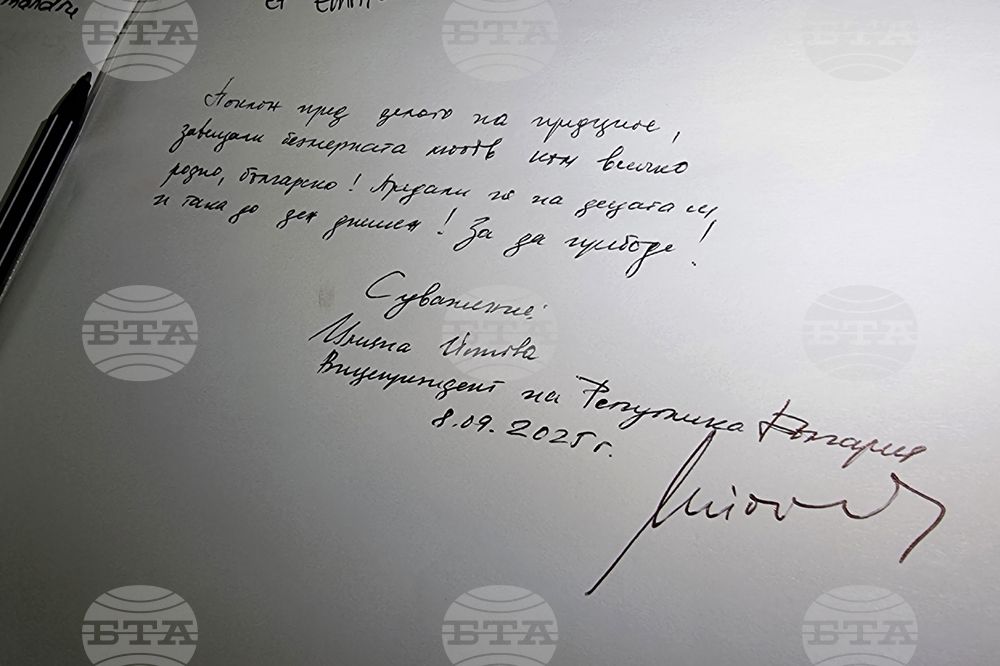 Поклон пред делото на предците,
завещали безмерната любов към всичко
родно, българско! Предали го на децата си,
и така до ден днешен! За да пребъде!
С уважение:
Илияна Йотова
Вицепрезидент на Република България
8.09.2025 г.
БТА
БТА
БТА
БТА
БТА
БТА
БТА
БТА
БТА